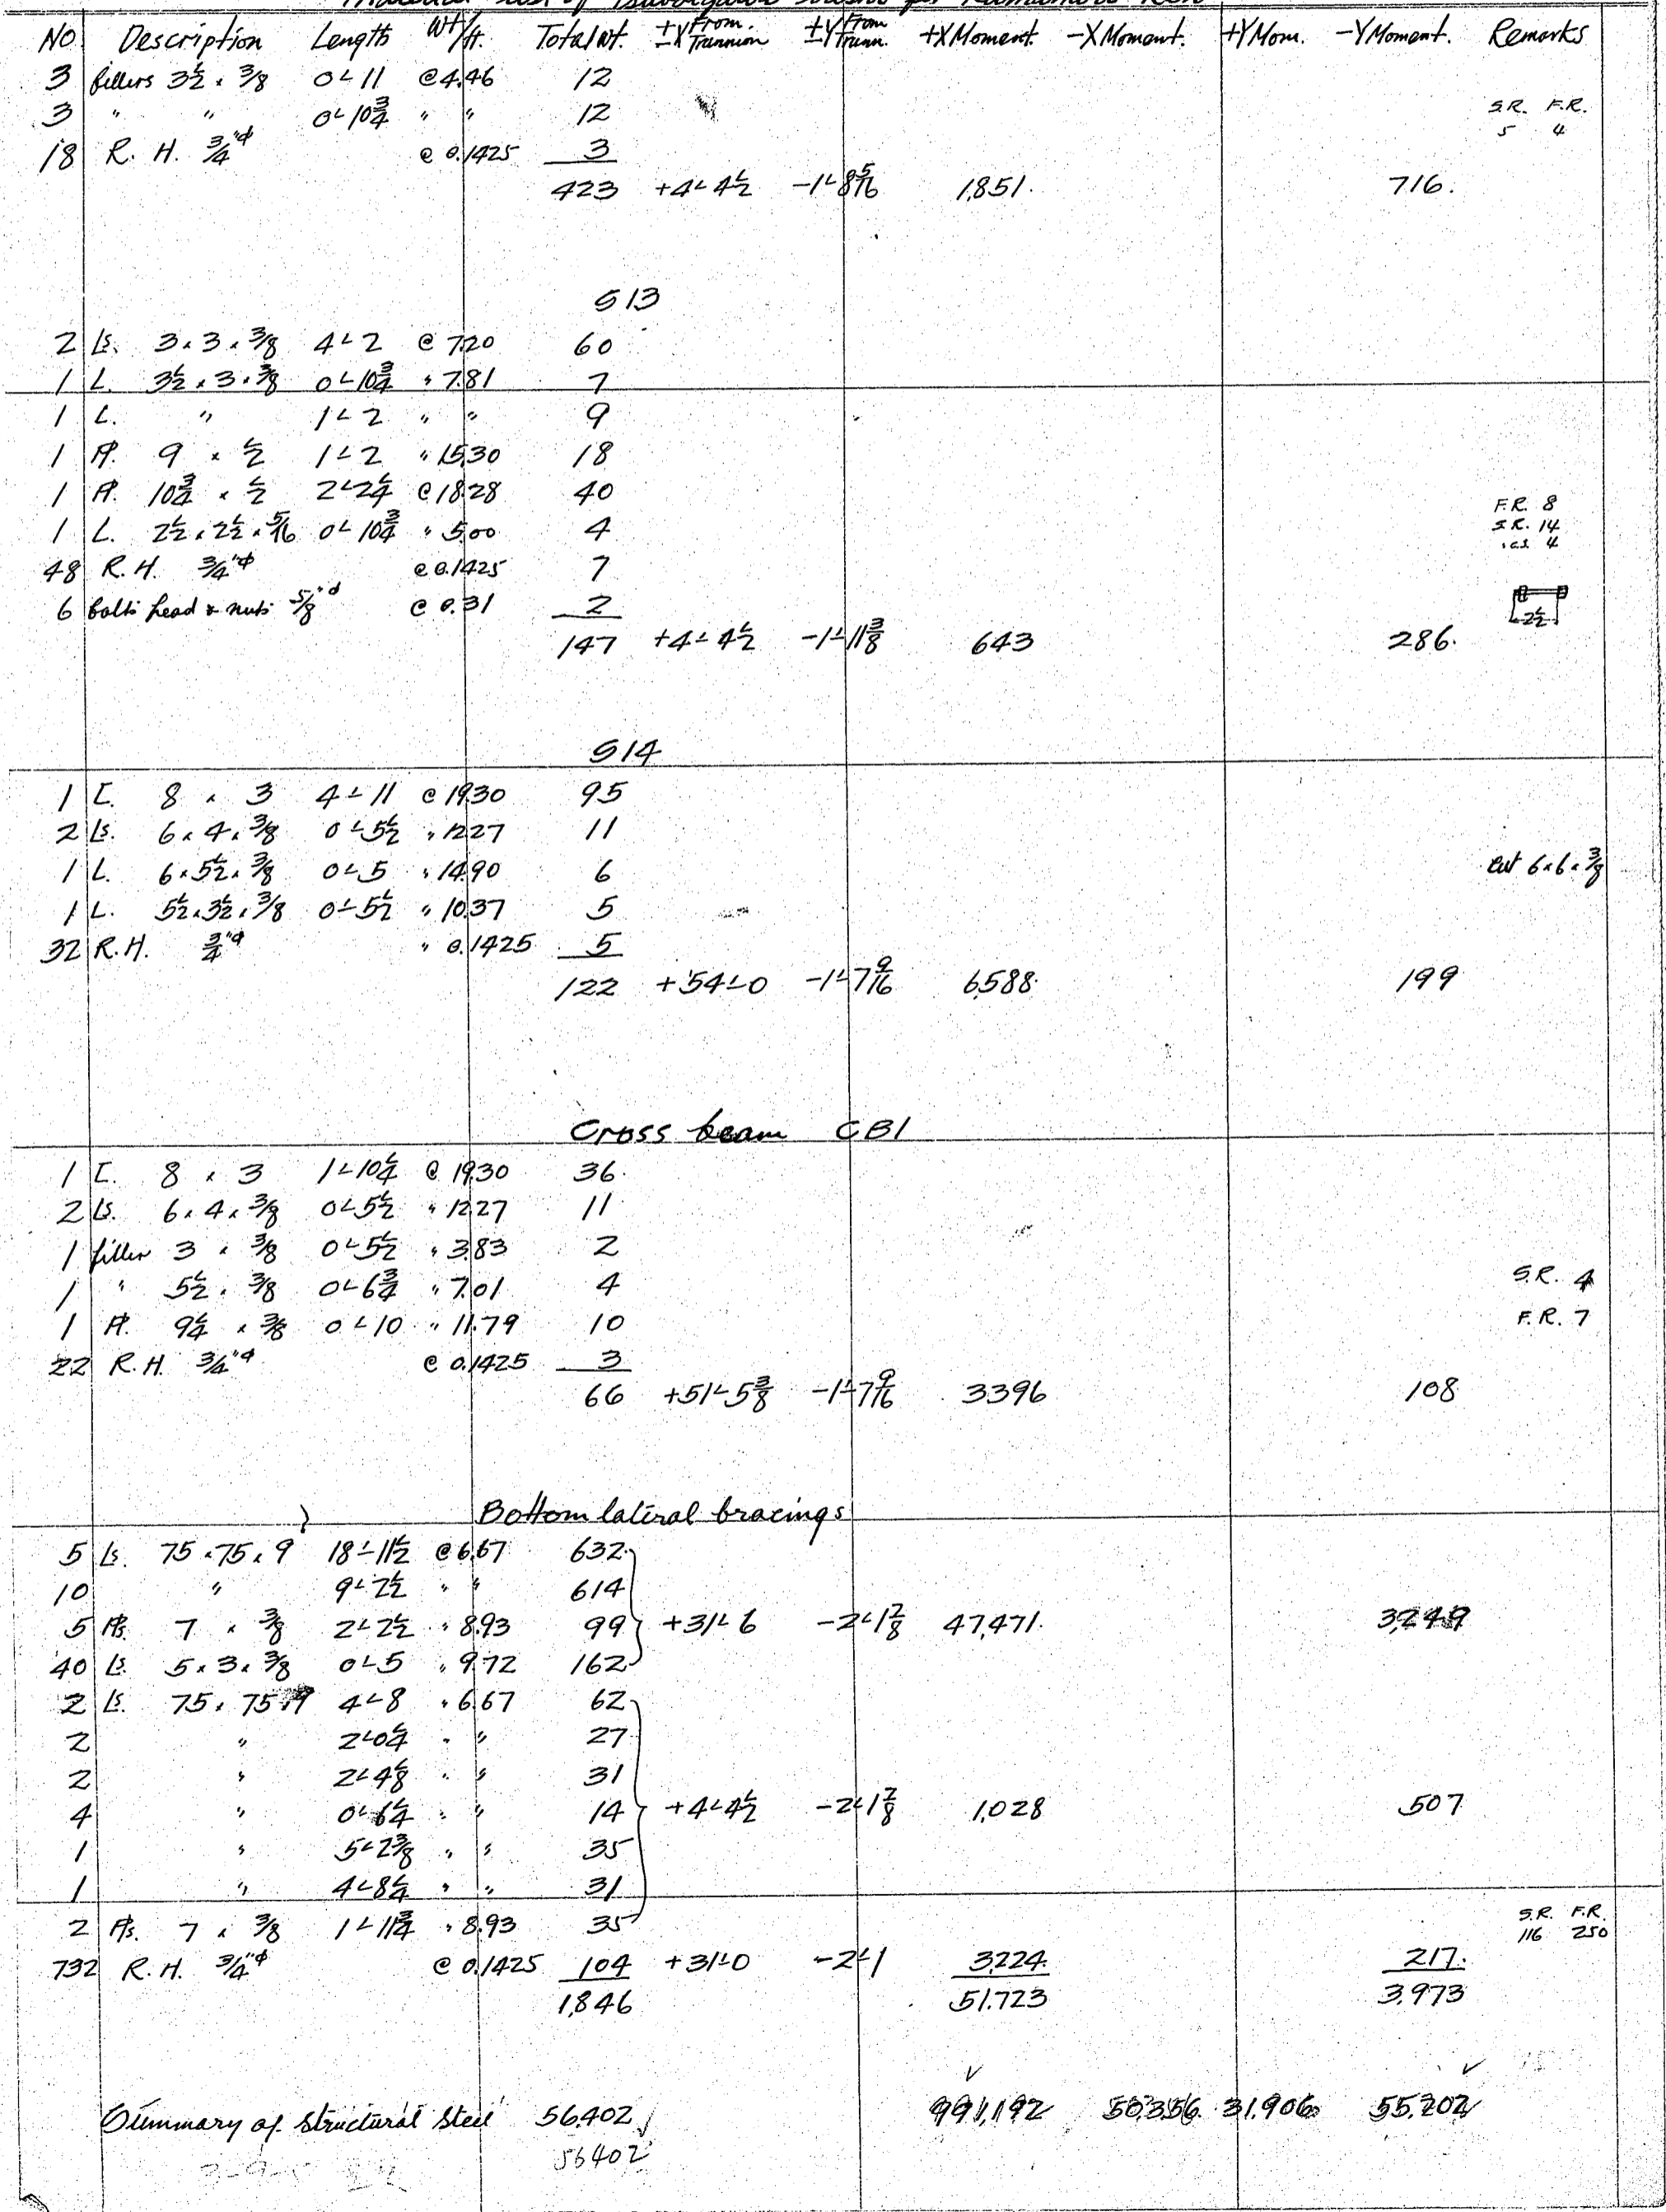 NO. Description Length Wt/ft. Total wt. ±X From Trunnion ±Y From Trunn. +X Moment. -X Moment. +Y Mom. -Y Moment. Remarks
3 fillers 3½ × 3/8 0'-11 @ 4.46 12
3 " " 0'-10¾ " " 12 S.R. F.R.
18 R. H. ¾"φ @ 0.1425 3 5 4
423 +4'-4½ -1'-8 5/16 1,851. 716.
S13
2 Ls. 3×3×3/8 4'-2 @ 7.20 60
1 L. 3½×3×3/8 0'-10¾ " 7.81 7
1 L. " 1'-2 " " 9
1 Pl. 9 × ½ 1'-2 " 15.30 18
1 Pl. 10¾ × ½ 2'-2¼ @ 18.28 40 F.R. 8
1 L. 2½×2½×5/16 0'-10¾ " 5.00 4 S.R. 14
48 R.H. ¾"φ @ 0.1425 7 4
6 bolts head & nuts 5/8"φ @ 0.31 2 2½
147 +4'-4½ -1'-11 3/8 643 286.
S14
1 [. 8 × 3 4'-11 @ 19.30 95
2 Ls. 6×4×3/8 0'-5½ " 12.27 11
1 L. 6×5½×3/8 0'-5 " 14.90 6 cut 6×6×3/8
1 L. 5½×3½×3/8 0'-5½ " 10.37 5
32 R.H. ¾"φ " 0.1425 5
122 +54'-0 -1'-7 9/16 6,588. 199
Cross beam CB1
1 [. 8 × 3 1'-10¼ @ 19.30 36.
2 Ls. 6×4×3/8 0'-5½ " 12.27 11
1 filler 3 × 3/8 0'-5½ " 3.83 2
1 " 5½ × 3/8 0'-6¾ " 7.01 4 S.R. 4
1 Pl. 9¼ × 3/8 0'-10 " 11.79 10 F.R. 7
22 R.H. ¾"φ @ 0.1425 3
66 +51'-5 3/8 -1'-7 9/16 3396 108
Bottom lateral bracings
5 Ls. 75×75×9 18'-11½ @ 6.67 632
10 " 9'-2½ " " 614
5 Pls. 7 × 3/8 2'-2½ " 8.93 99 +31'-6 -2'-1 7/8 47,471. 3,249
40 Ls. 5×3×3/8 0'-5 " 9.72 162
2 Ls. 75×75×9 4'-8 " 6.67 62
2 " 2'-0¼ " " 27
2 " 2'-4 1/8 " " 31
4 " 0'-6¼ " " 14 +4'-4½ -2'-1 7/8 1,028 507
1 " 5'-2 3/8 " " 35
1 " 4'-8¼ " " 31
2 Pls. 7 × 3/8 1'-11¾ " 8.93 35 S.R. F.R.
116 250
732 R.H. ¾"φ @ 0.1425 104 +31'-0 -2'-1 3,224. 217.
1,846 51,723 3,973
Summary of structural steel 56,402 991,192 50,356 31,906 55,202
56402